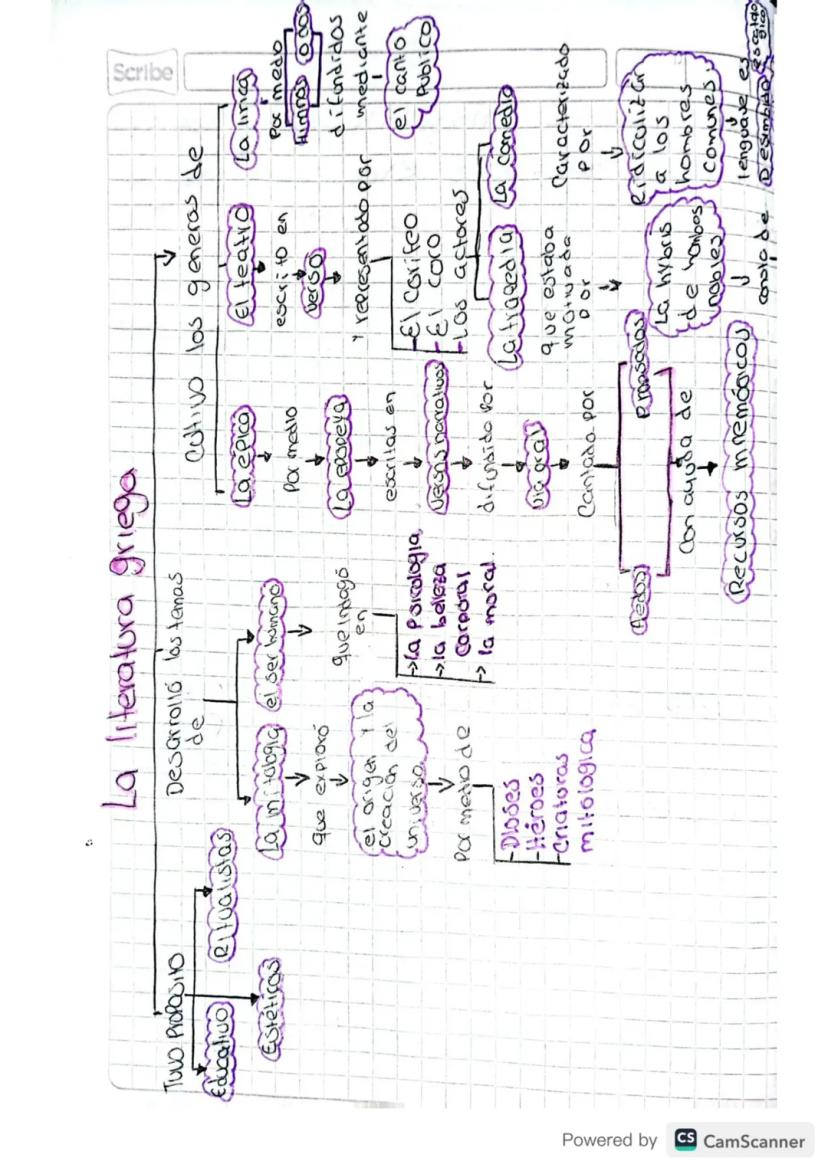 Scribe
La literatura griega
Tuvo proposito
Educativo
Ritualistas
Estéticas
Desarrolló los temas
de
La mitologia
que exploró
el origen y la
creación del
universo
Por medio de
-Dioses
-Héroes
-criaturas
mitologica
el ser humano
que indagó
en
→La psicologia,
→la belleza
corporal
→ la moral.
Cultivo los generos de
La épica
Por medio
La epopeya
escritas en
versos narrativos
difundido por
via oral
Cantada por
Aedos
Rapsodas
Con ayuda de
Recursos mnemógicos
El teatro
escrito en
verso
y representado por
-El Corifeo
-El coro
-Los actores
La tragedia
que estaba
motivada
por
La hybris
de hombres
nobles
La comedia
Caracterizado
por
Ridiculizar
a los
hombres
comunes.
lenguave es
Desinibido
La lirica
Por medio
Himnos
odas
difundidos
mediante
el canto
Publico
Powered by CS CamScanner